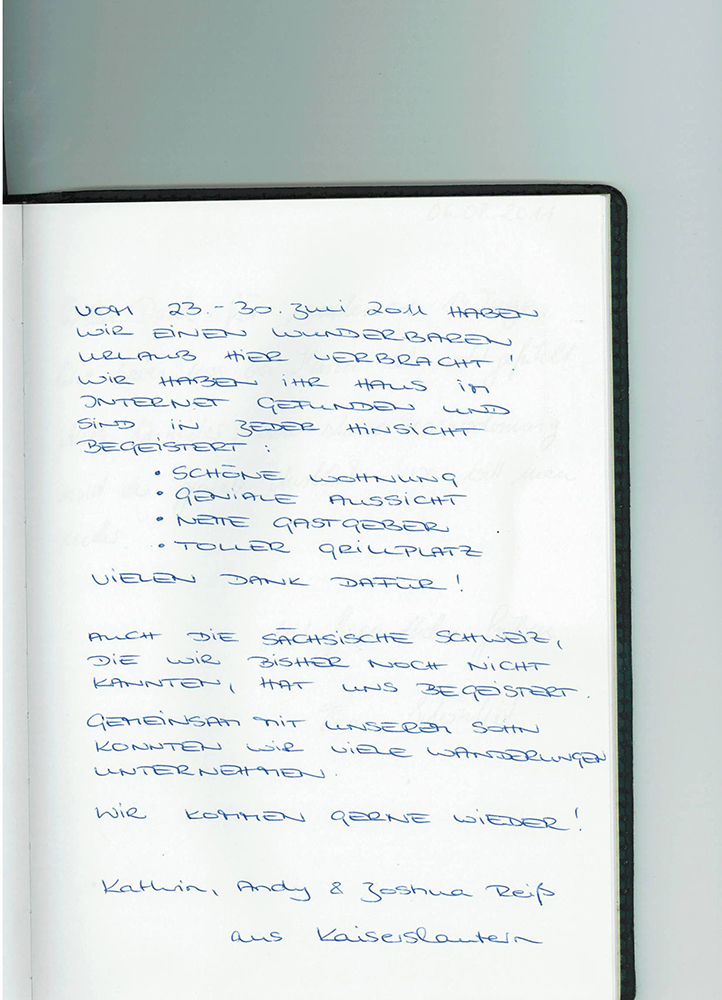 VOM 23.-30. Juli 2011 HABEN
WIR EINEN WUNDERBAREN
URLAUB HIER VERBRACHT!
WIR HABEN IHR HAUS IM
INTERNET GEFUNDEN UND
SIND IN JEDER HINSICHT
BEGEISTERT:
• SCHÖNE WOHNUNG
• GENIALE AUSSICHT
• NETTE GASTGEBER
• TOLLER GRILLPLATZ
VIELEN DANK DAFÜR!
AUCH DIE SÄCHSISCHE SCHWEIZ,
DIE WIR BISHER NOCH NICHT
KANNTEN, HAT UNS BEGEISTERT.
GEMEINSAM MIT UNSEREM SOHN
KONNTEN WIR VIELE WANDERUNGEN
UNTERNEHMEN.
WIR KOMMEN GERNE WIEDER!
Kathrin, Andy & Joshua Reiß
aus Kaiserslautern